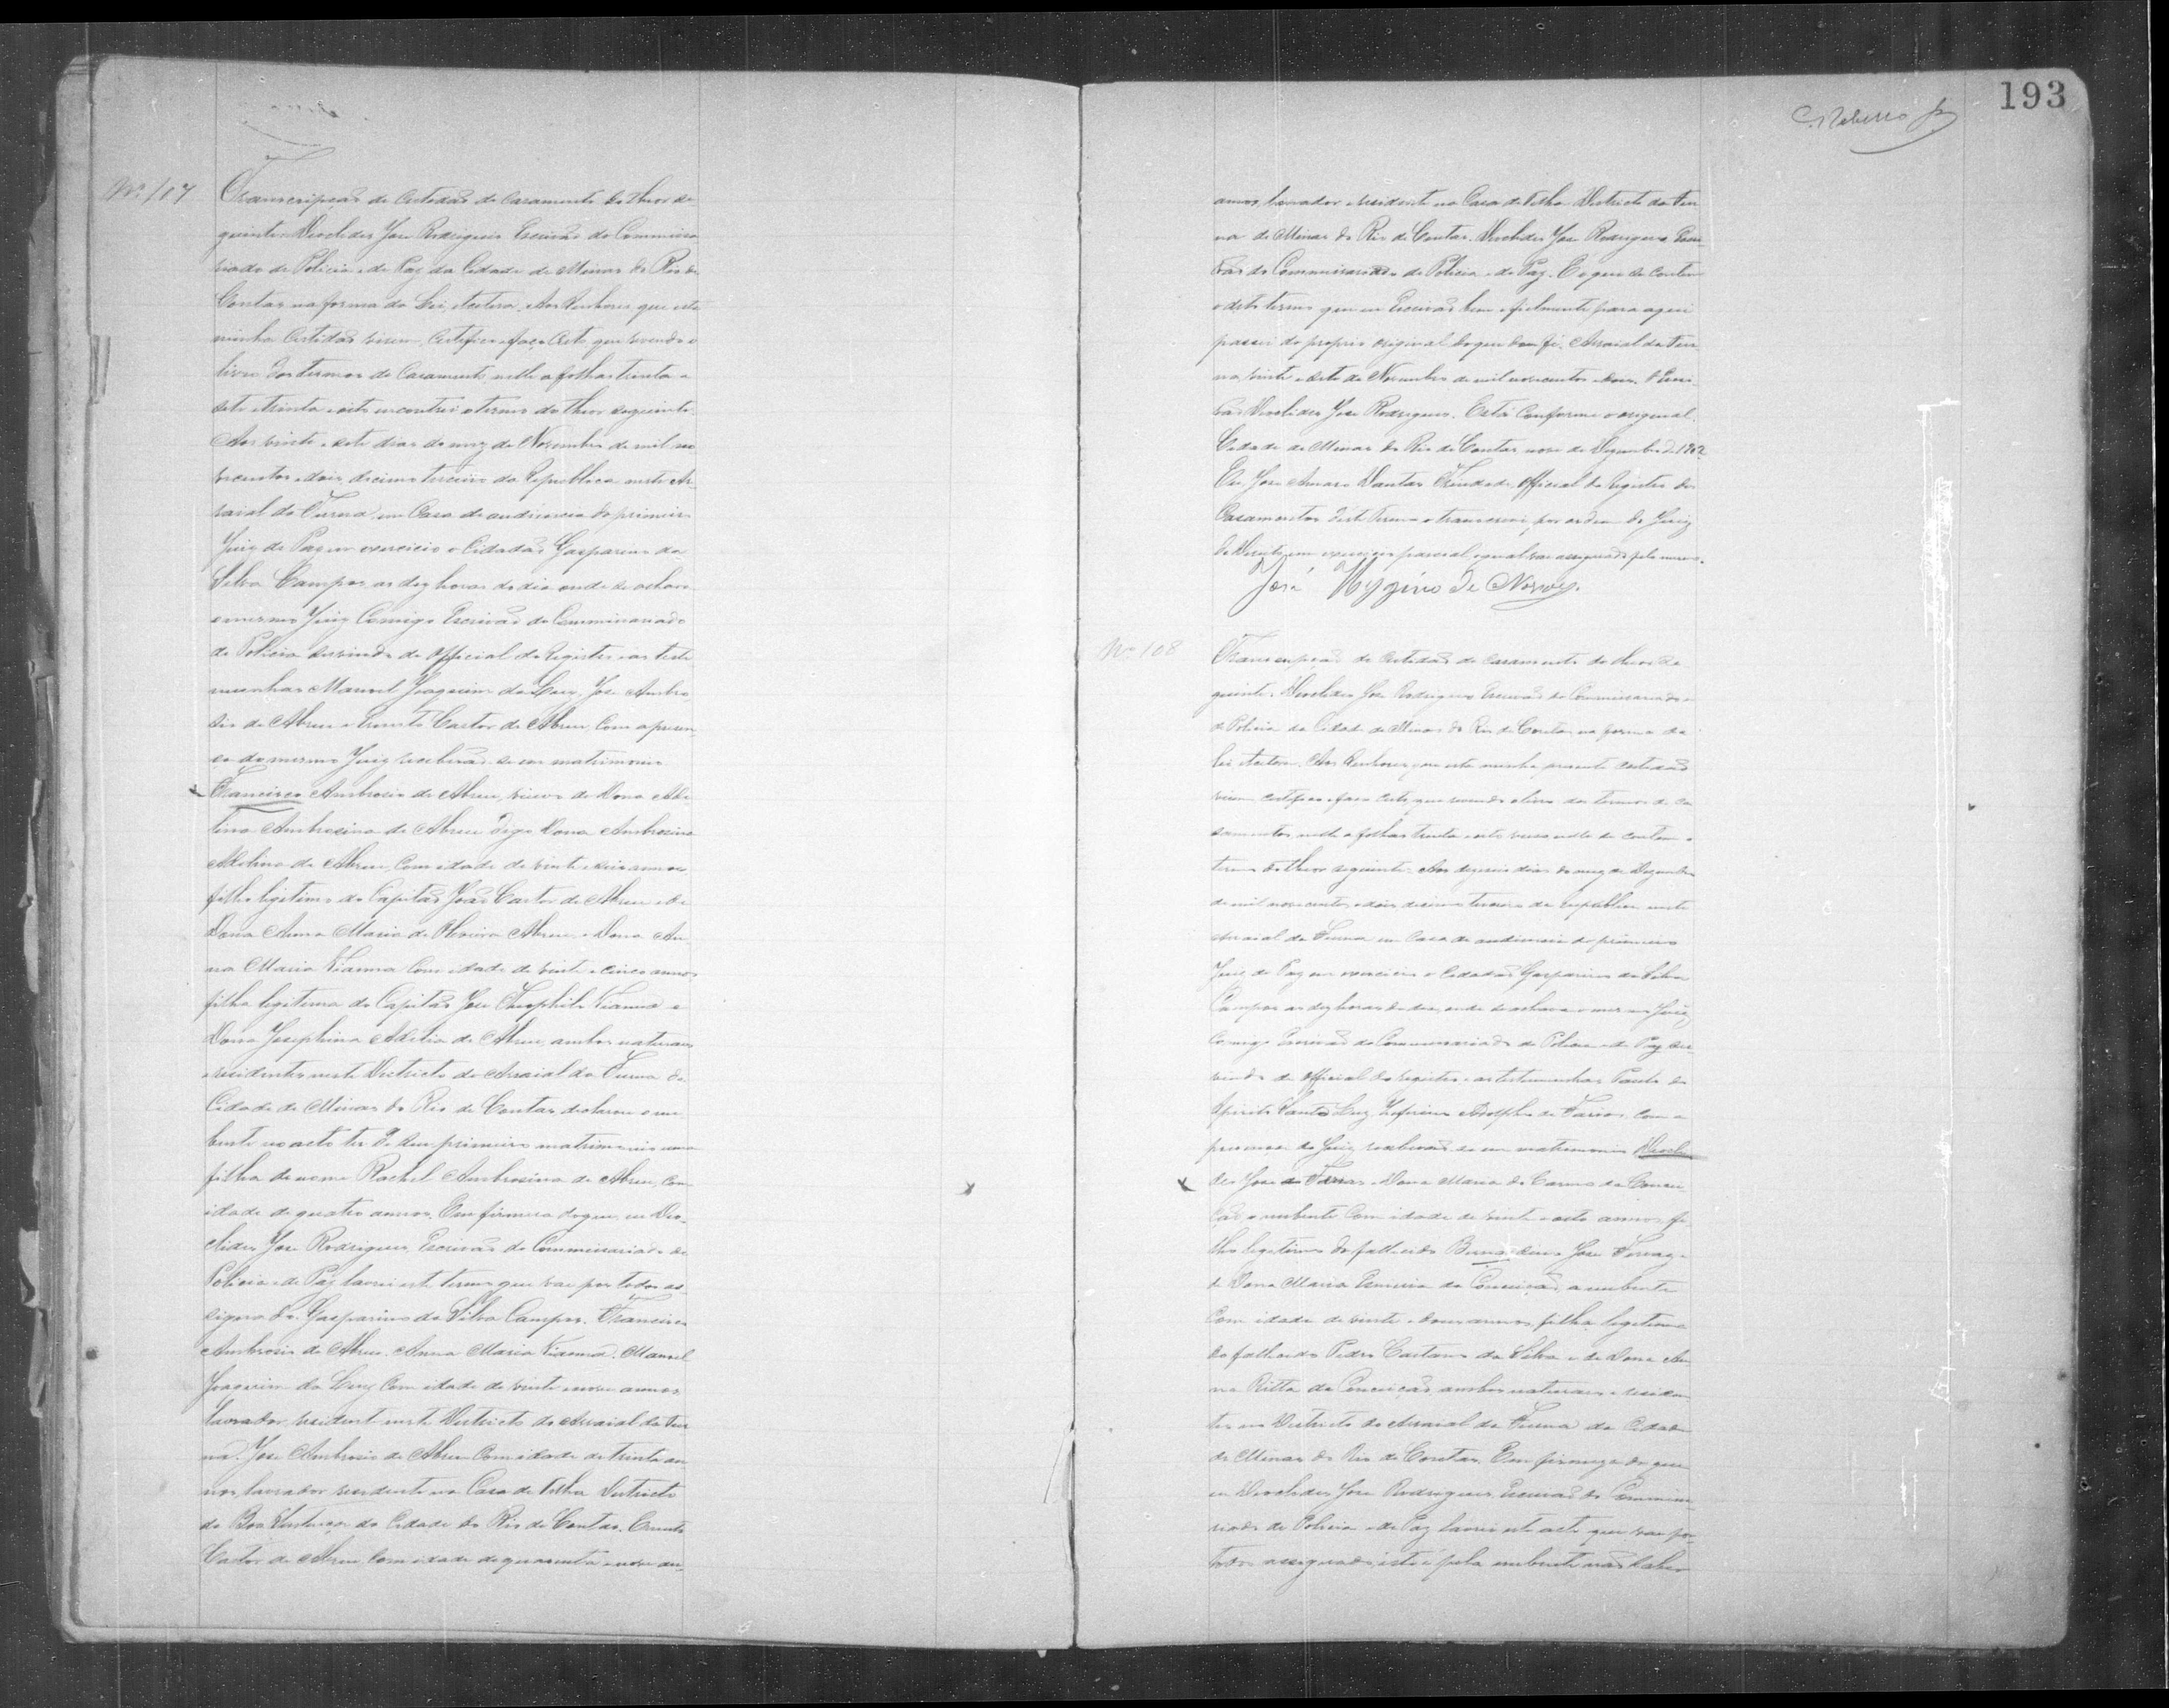 Nº 107
Transcripção de Certidão de Casamento do theor se
guinte. Deoclides Jose Rodrigues Escrivão do Commissa
riado de Policia e de Paz da Cidade de Minas do Rio de
Contas na forma da Lei, etcetera. Aos Senhores que esta
minha Certidão virem, Certifico e faço Certo, que revendo o
livro dos termos de Casamento nelle a folhas trinta e
sete e trinta e oito encontrei o termo do theor seguinte.
Aos vinte e sete dias do mez de Novembro de mil no
vecentos e dois, decimo terceiro da Republica neste Ar
raial da Furna, em Casa de audiencia do primeiro
Juiz de Paz em exercicio o Cidadão Gasparino da
Silva Campos as dez horas do dia onde se achava
o mesmo Juiz Comigo Escrivão do Commissariado
de Policia servindo de Official do Registro e as teste
munhas Manoel Joaquim da Luz, Jose Ambro
sio de Abreu e Castor de Abreu, Com a presen
ça do mesmo Juiz receberão-se em matrimonio
Francisco Ambrosio de Abreu, viuvo de Dona Ade
lina Ambrosina de Abreu digo Dona Ambrosina
Adelina de Abreu, Com idade de vinte e seis annos
filho legitimo do Capitão João Castor de Abreu e de
Dona Anna Maria de Oliveira Abreu, e Dona An
na Maria Vianna Com idade de vinte e cinco annos
filha legitima do Capitão Jose Theophilo Vianna e
Dona Josephina Adelia de Abreu, ambos naturaes
e residentes neste Districto do Arraial da Furna da
Cidade de Minas do Rio de Contas, declarou o nu
bente no acto ter de seu primeiro matrimonio uma
filha de nome Rachel Ambrosina de Abreu, Com
idade de quatro annos. Em firmeza do que, eu Deo
clides Jose Rodrigues, Escrivão do Commissariado de
Policia e de Paz lavrei este termo que vae por todos as
signado. Gasparino da Silva Campos. Francisco
Ambrosio de Abreu. Anna Maria Vianna. Manoel
Joaquim da Luz Com idade de vinte e nove annos
lavrador, residente neste Districto do Arraial da Fur
na. Jose Ambrosio de Abreu Com idade de trinta an
nos, lavrador residente na Casa de Telha Districto
da Boa Sentença da Cidade do Rio de Contas.
Castor de Abreu, Com idade de quarenta e nove an
193
nnos, lavrador e residente na Casa de Telha Districto da Fur
na de Minas do Rio de Contas. Deoclides Jose Rodrigues Escri
vão do Commissariado de Policia e de Paz. E o que se contem
o dito termo que eu Escrivão bem e fielmente para aqui
passei do proprio original do que dou fé. Arraial da Fur
na vinte e sete de Novembro de mil novecentos e dois. O Escri
vão Deoclides Jose Rodrigues. Está Conforme o original.
Cidade de Minas do Rio de Contas nove de Dezembro de 1902
Eu, Jose Amaro Dantas Trindade, Official do Registro dos
Casamentos d'este Termo o transcrevi por ordem do Juiz
de Direito em exercicio parcial o qual vae assignado pelo mesmo.
José Hygino de Novaes.
Nº 108
Transcripção de Certidão de casamento do theor se
guinte. Deoclides Jose Rodrigues Escrivão do Commissariado
de Policia da Cidade de Minas do Rio de Contas, na forma da
lei etcetera. Aos Senhores que esta minha presente Certidão
virem certifico e faço certo que revendo o livro dos termos de ca
samentos nelle a folhas trinta e oito verso nelle se contem o
termo do theor seguinte. Aos dias do mez de Dezembro
de mil novecentos e dois decimo terceiro da republica neste
Arraial da Furna em Casa de audiencia do primeiro
Juiz de Paz em exercicio o Cidadão Gasparino da Silva
Campos as dez horas do dia, onde se achava o mesmo Juiz
Comigo Escrivão do Commissariado de Policia e de Paz ser
vindo de Official do registro e as testemunhas Paulo do
Spirito Santo Luz, Zeferino Adolpho de Farias, Com a
presença do Juiz receberão-se em matrimonio Deocli
des Jose de Farias e Dona Maria do Carmo da Concei
ção o nubente Com idade de vinte e oito annos, fi
lho legitimo do fallecido Bernardino Jose Ferraz e
de Dona Maria da Conceição, a nubente
Com idade de vinte e dous annos, filha legitima
do fallecido Pedro Caetano da Silva e de Dona An
na Ritta da Conceição ambos naturaes e residen
tes no Districto do Arraial da Furna da Cidade
de Minas do Rio de Contas. Em firmeza do que
eu Deoclides Jose Rodrigues Escrivão do Commissa
riado de Policia e de Paz lavrei este acto que vae por
todos assignado, isto é pela nubente não saber